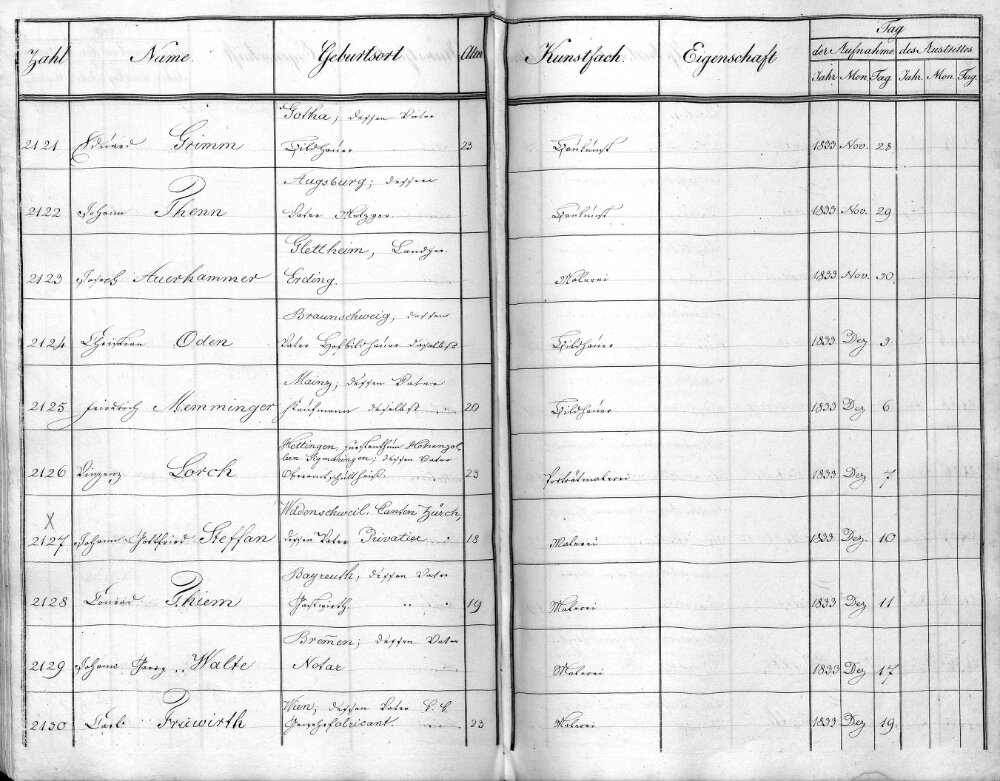 Zahl Name Geburtsort Alter Kunstfach. Eigenschaft Tag
der Aufnahme des Austrittes
Jahr Mon. Tag Jahr. Mon. Tag
Gotha; dessen Vater
2121 Eduard Grimm Bildhauer 23 Baukunst 1833 Nov. 28
Augsburg; dessen
2122 Johann Thenn Vater Metzger. Baukunst 1833 Nov. 29
Glettheim, Landger.
2123 Joseph Auerhammer Erding. Malerei 1833 Nov. 30
Braunschweig, dessen
2124 Christian Oden Vater Hofbildhauer daselbst Bildhauer 1833 Dez 3
Mainz; dessen Vater
2125 Friedrich Memminger Kaufmann daselbst 20 Bildhauer 1833 Dez 6
Hettingen, Fürstenthum Hohenzol-
lern Sigmaringen; dessen Vater
2126 Vinzenz Lorch Oberamtsschultheis. 23 Porträtmalerei 1833 Dez 7
X Wädenschweil, Canton Zürch,
2127 Johann Gottfried Steffan dessen Vater Privatier 18 Malerei 1833 Dez 10
Bayreuth, dessen Vater
2128 Conrad Thiem Gastwirth 19 Malerei 1833 Dez 11
Bremen; dessen Vater
2129 Johann Georg Walte Notar Malerei 1833 Dez 17
Wien; dessen Vater k. k.
2130 Carl Früwirth 23 Malerei 1833 Dez 19